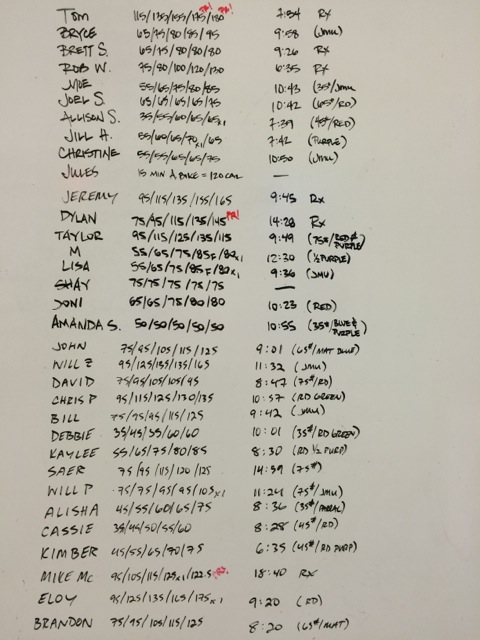 TOM 115/135/155/175/180 PR! PR! 7:54 RX
BRYCE 65/75/80/85/95 9:58 (JMU)
BRETT S. 65/75/80/80/80 9:26 RX
ROB W. 75/80/100/120/130 6:35 RX
55/65/75/80/85 10:43 (35#/JMU
JOEL S. 65/65/65/65/75 10:42 (65#/RD)
ALLISON S. 35/55/60/65/65x1 7:39 (45#/RED)
JILL H. 55/60/65/70x1/65 7:42 (PURPLE)
CHRISTINE 55/55/65/65/75 10:50 (JMU)
JULES 15 MIN A BIKE = 120 CAL —
JEREMY 95/115/135/155/165 9:45 RX
DYLAN 75/95/115/135/145 PR! 14:28 RX
TAYLOR 95/115/125/135/115 9:49 (75#/RED & PURPLE)
M 55/65/75/85F/80x1 12:20 (½ PURPLE)
LISA 55/65/75/85F/80x1 9:36 (JMU)
SHAY 75/75/75/75/75 —
JONI 65/65/75/80/80 10:23 (RED)
AMANDA S. 50/50/50/50/50 10:55 (35#/BLUE & PURPLE)
JOHN 75/95/105/115/125 9:01 (65#/MAT BLUE)
WILL Z 95/125/135/135/165 11:32 (JMU)
DAVID 75/95/105/105/95 8:47 (75#/RD)
CHRIS P 95/115/125/130/135 10:57 (RD GREEN)
BILL 75/75/95/115/125 9:42 (JMU)
DEBBIE 35/45/55/60/60 10:01 (35#/RD GREEN)
KAYLEE 55/65/75/80/85 8:30 (RD ½ PURP)
SAER 75/95/115/120/125 14:59 (75#)
WILL P 75/75/95/95/105x1 11:24 (75#/JMU)
ALISHA 45/55/60/65/75 8:36 (35#/
CASSIE 35/45/50/55/60 8:28 (45#/RD)
KIMBER 45/55/65/70/75 6:35 (45#/RD PURP)
MIKE MC 95/105/115/125x1/122.5 PR. 18:40 RX
ELOY 95/125/135/165/175x1 9:20 (RD)
BRANDON 75/95/105/115/125 8:20 (65#/MAT)